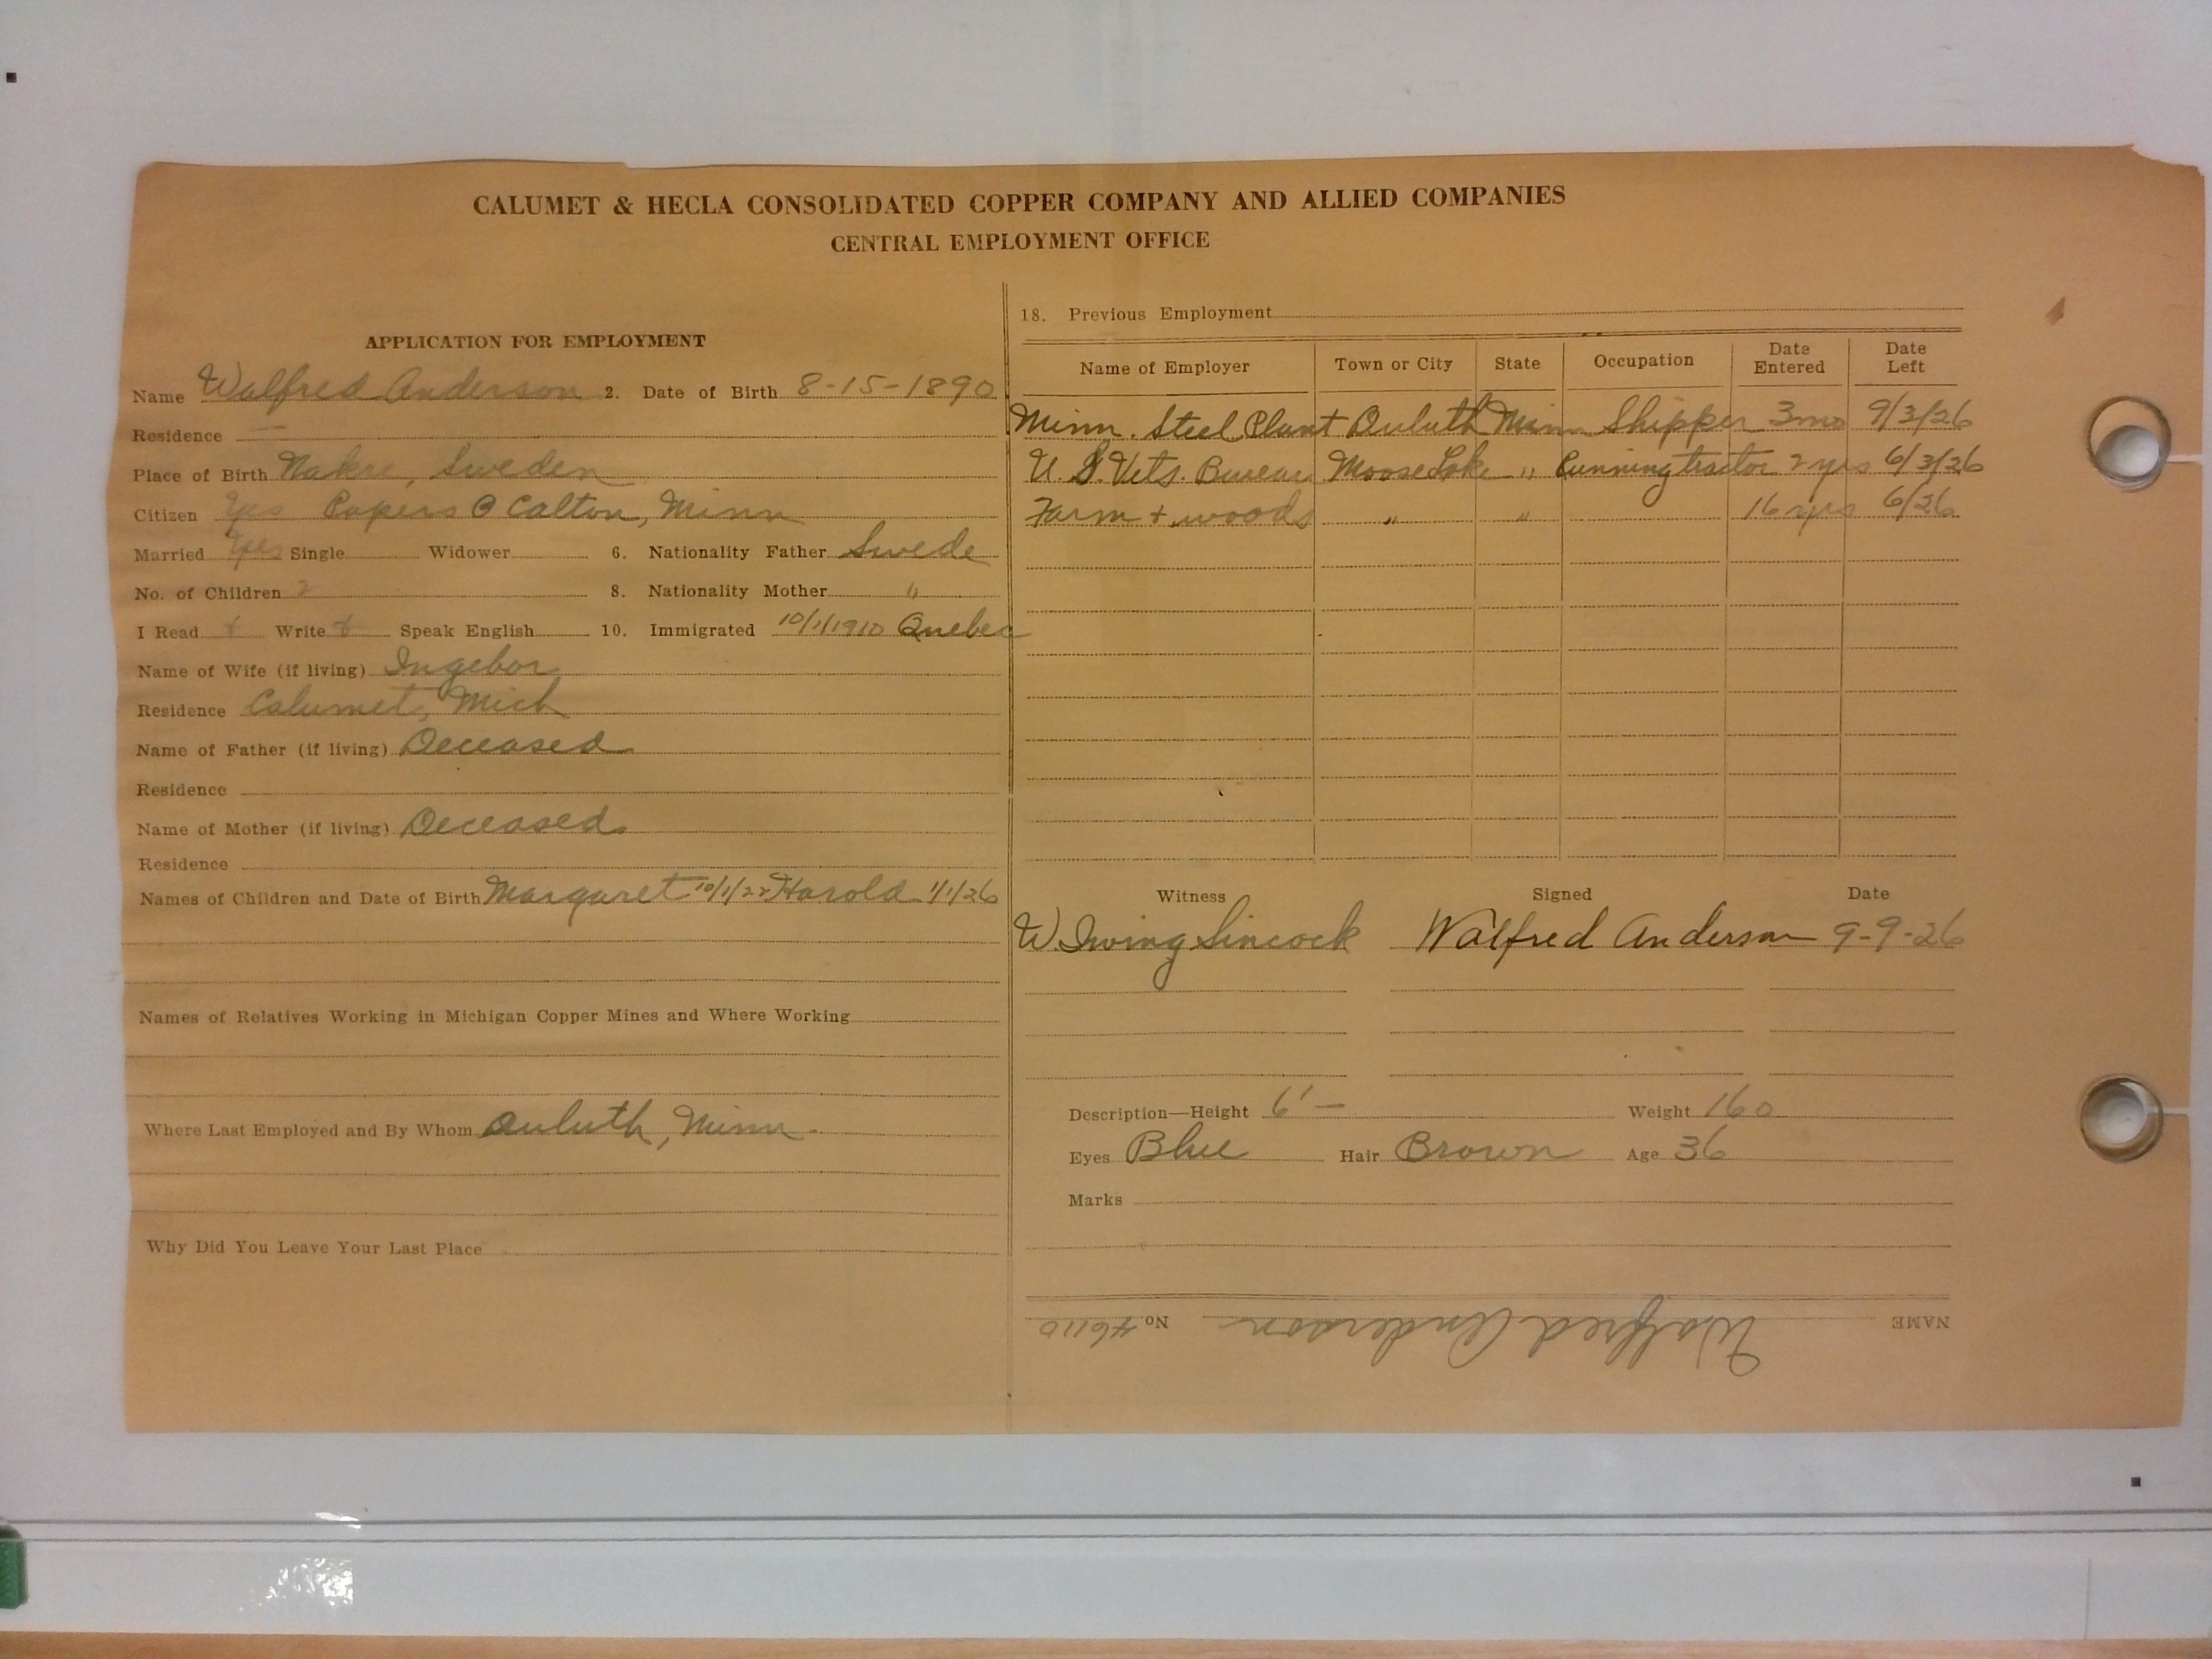 CALUMET & HECLA CONSOLIDATED COPPER COMPANY AND ALLIED COMPANIES
CENTRAL EMPLOYMENT OFFICE
APPLICATION FOR EMPLOYMENT
Name Walfred Anderson 2. Date of Birth 8-15-1890
Residence —
Place of Birth Nakre, Sweden
Citizen Yes Papers @ Calton, Minn
Married Yes Single Widower 6. Nationality Father Swede
No. of Children 2 8. Nationality Mother "
I Read + Write + Speak English 10. Immigrated 10/1/1910 Quebec
Name of Wife (if living) Ingebor
Residence Calumet, Mich
Name of Father (if living) Deceased
Residence
Name of Mother (if living) Deceased
Residence
Names of Children and Date of Birth Margaret 10/1/22 Harold 1/1/26
Names of Relatives Working in Michigan Copper Mines and Where Working
Where Last Employed and By Whom Duluth, Minn.
Why Did You Leave Your Last Place
18. Previous Employment
Name of Employer Town or City State Occupation Date Entered Date Left
Minn. Steel Plant Duluth Minn Shipper 3mo 9/3/26
U.S. Vets. Bureau Moose Lake " Running tractor 2 yrs 6/3/26
Farm + woods " " 16 yrs 6/26
Witness Signed Date
W. Irving Sincock Walfred Anderson 9-9-26
Description—Height 6' — Weight 160
Eyes Blue Hair Brown Age 36
Marks
NAME Walfred Anderson No. 46110